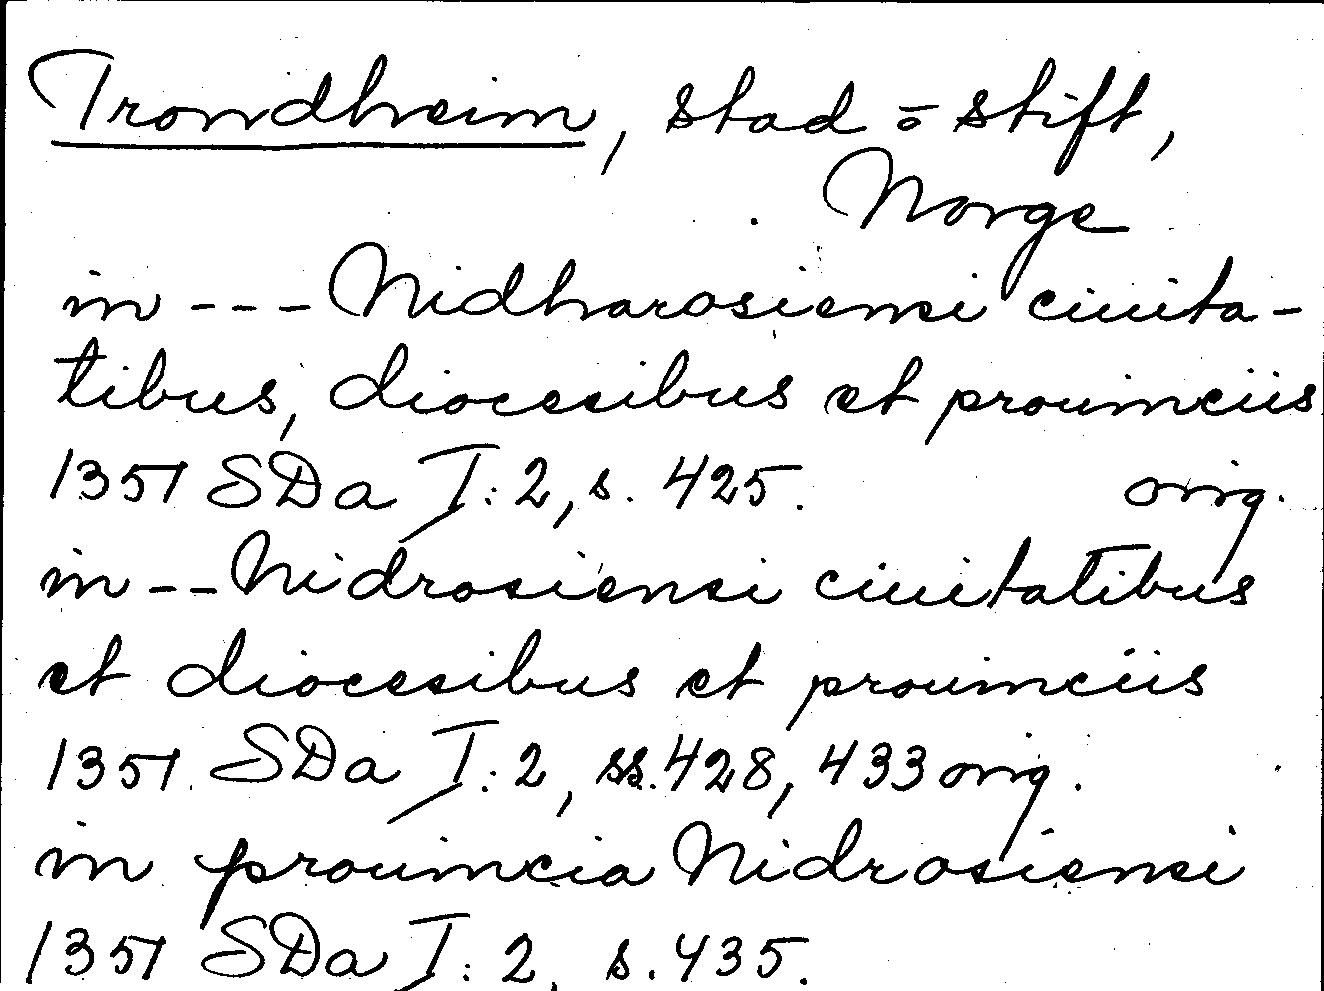 Trondheim, stad o stift,
Norge
in --- Nidharosiensi ciuita-
tibus, diocesibus et prouinciis
1351 SDa I:2, s. 425. orig.
in -- Nidrosiensi ciuitatibus
et diocesibus et prouinciis
1351. SDa I:2, ss. 428, 433 orig.
in prouincia Nidrosiensi
1351 SDa I:2, s. 435.